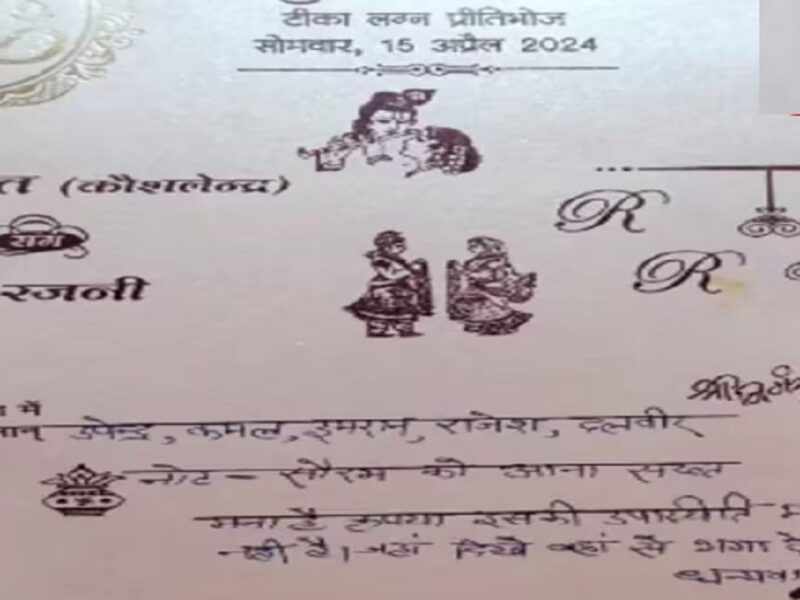 टीका लग्न प्रीतिभोज
सोमवार, 15 अप्रैल 2024
त (कौशलेन्द्र)
संग
रजनी
R
R
में
मान् उपेन्द्र, कमल, इमरान, राजेश, दलवीर
नोट - सौरभ को आना सख्त
मना है कृपया इसकी उपस्थिति
नही है। जहां दिखे वहां से भगा दे
धन्यवाद